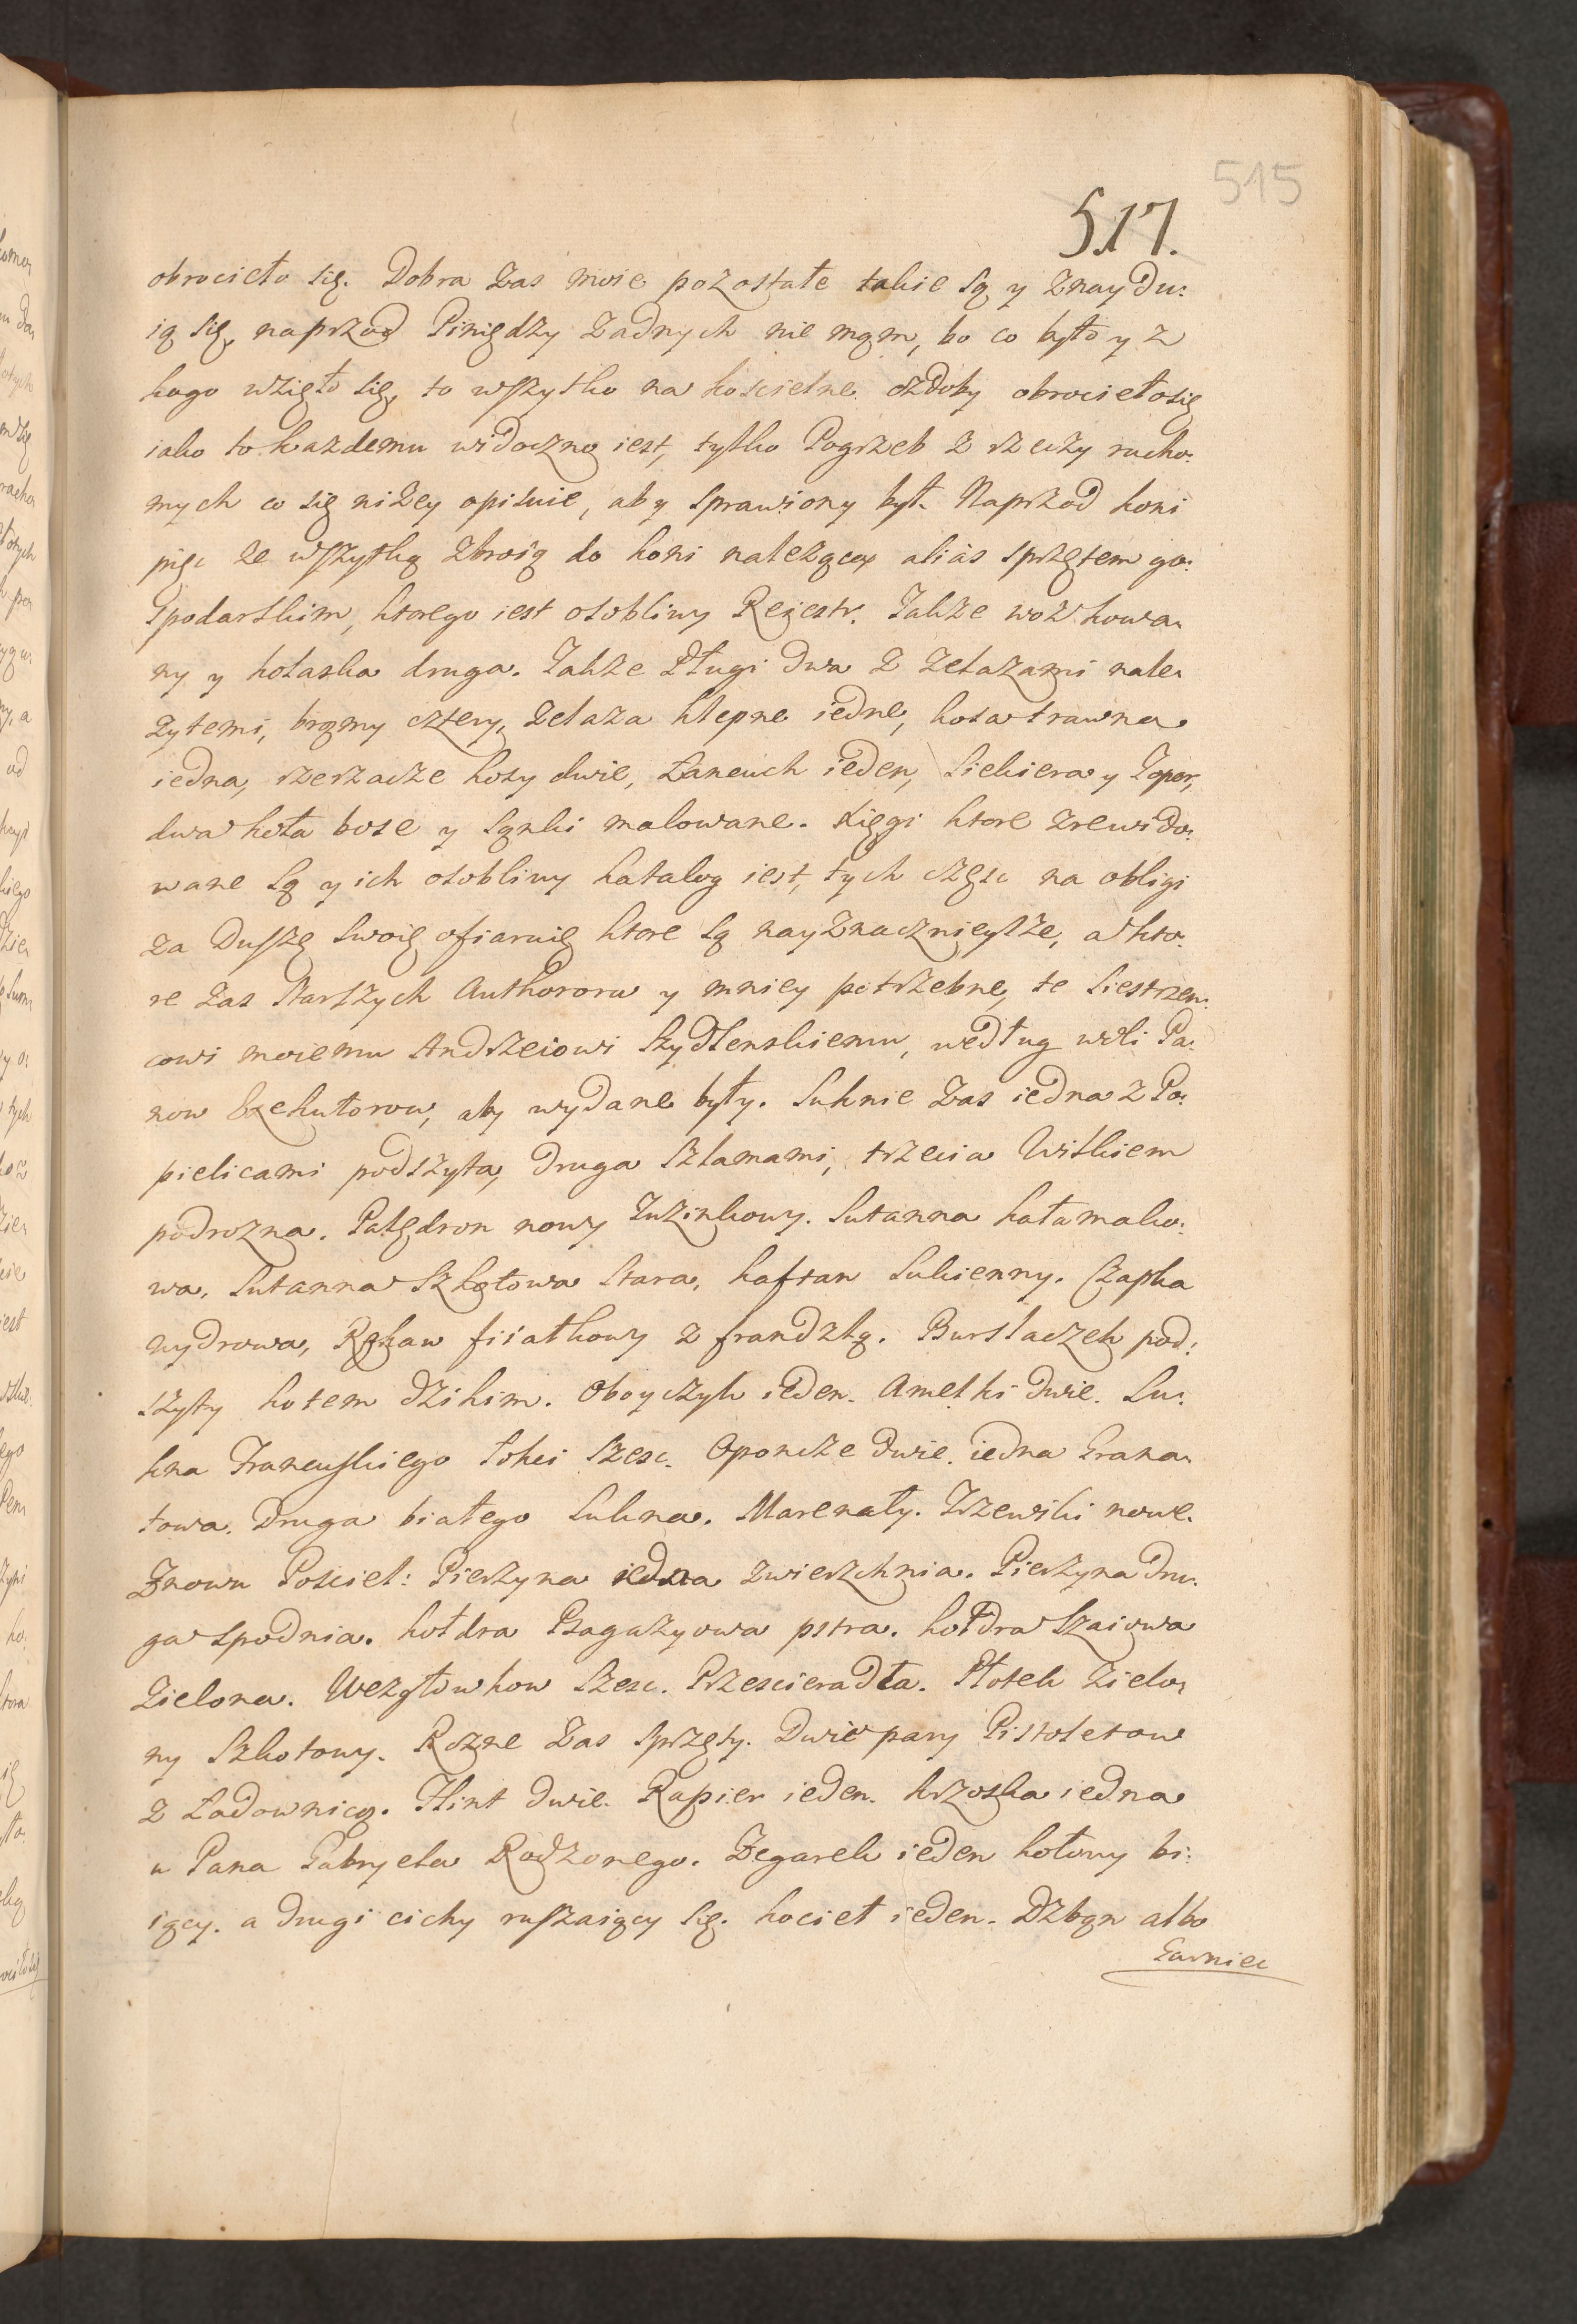 515
517.
obrocieło się. Dobra zas moie pozostałe takie są y znaydu:
ią się, naprzod Piniędzy żadnych nie mąm, bo co było y z
kogo wzięło się, to wszytko na koscielne ozdoby obrociełosię
iako to każdemu widoczno iest, tylko Pogrzeb z rzeczy rucho:
mych co się niżey opisuie, aby sprawiony był. Naprzod koni
pięc ze wszytką zbroią do koni należącą alias sprzętem go:
spodarskim, ktorego iest osobliwy Rejestr. Takze woz kowa:
ny y kolaska druga. Takze Pługi dwa z żelazami nale:
zytemi, brąmy cztery, żelaza klepne iedne, kosa trawna
iedna, rzerzacze kosy dwie, Łancuch ieden, Siekiera y Topor,
dwa koła bose y sąnki malowane. Xięgi ktore zrewido:
wane są y ich osobliwy katalog iest, tych częsc na obligi
za Duszę swoię ofiaruię ktore są nayznacznieysze, a kto:
re zas starszych Authorow y mniey potrzebne, te siestrzen:
cowi moiemu Andrzeiowi Szydłenskiemu, według woli Pa:
now Exekutorow, aby wydane były. Suknie zas iedna z Po:
pielicami podszyta, druga szlamami, trzecia Wilkiem
podrozna. Palędron nowy Tuzinkowy. Sutanna kałamako:
wa, Sutanna Szkotowa stara, kaftan Sukienny. Czapka
wydrowa, Rękaw fiiałkowy z frandzlą. Burslaczek pod:
szyty kotem dzikim. Oboyczyk ieden. Amelki dwie. Su:
kna Francuskiego łokci szesc. Oponcze dwie. iedna Grana:
towa. Druga białego Sukna. Marenały. Trzewiki nowe.
Znowu Posciel: Pierzyna iedna zwierzchnia. Pierzyna dru:
ga spodnia. kołdra Bagazyowa pstra. kołdra Szaiowa
Zielona. Wezgłowkow szesc. Przescieradła. Płotek Zielo:
ny Szkotowy. Rozne zas sprzęty. Dwie pary Pistoletow
z Ładownicą. Flint dwie. Rapier ieden. krzoska iedna
u Pana Gabryela Rodzonego. Zegarek ieden kołowy bi:
iący. a drugi cichy ruszaiący się. kociel ieden. Dzbąn albo
Garniec